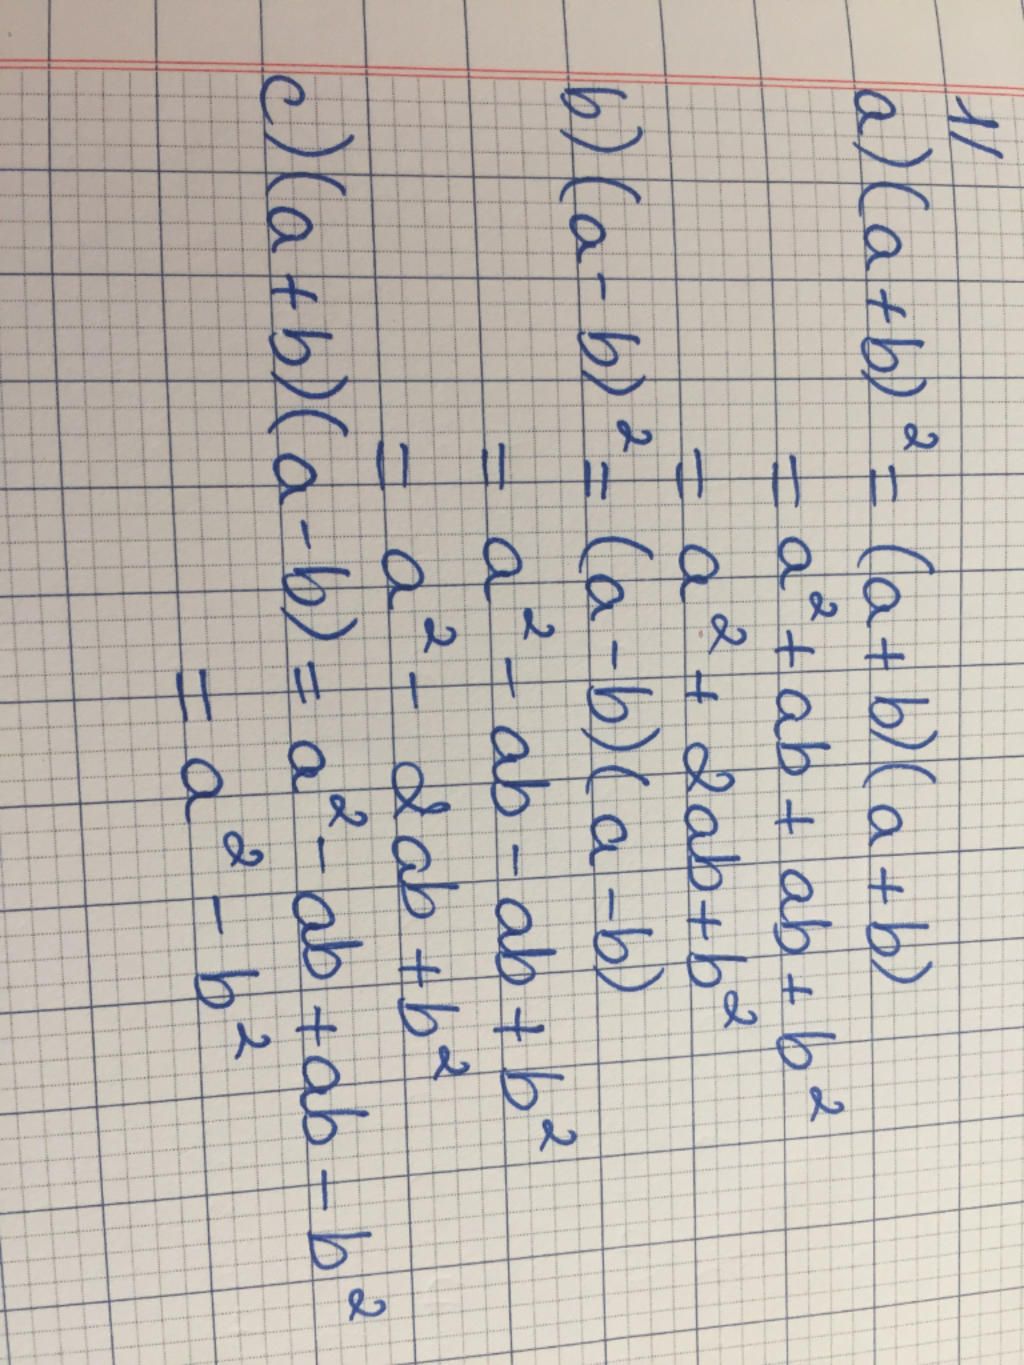 1/
a) (a+b)² = (a+b)(a+b)
= a² + ab + ab + b²
= a² + 2ab + b²
b) (a-b)² = (a-b)(a-b)
= a² - ab - ab + b²
= a² - 2ab + b²
c) (a+b)(a-b) = a² - ab + ab - b²
= a² - b²